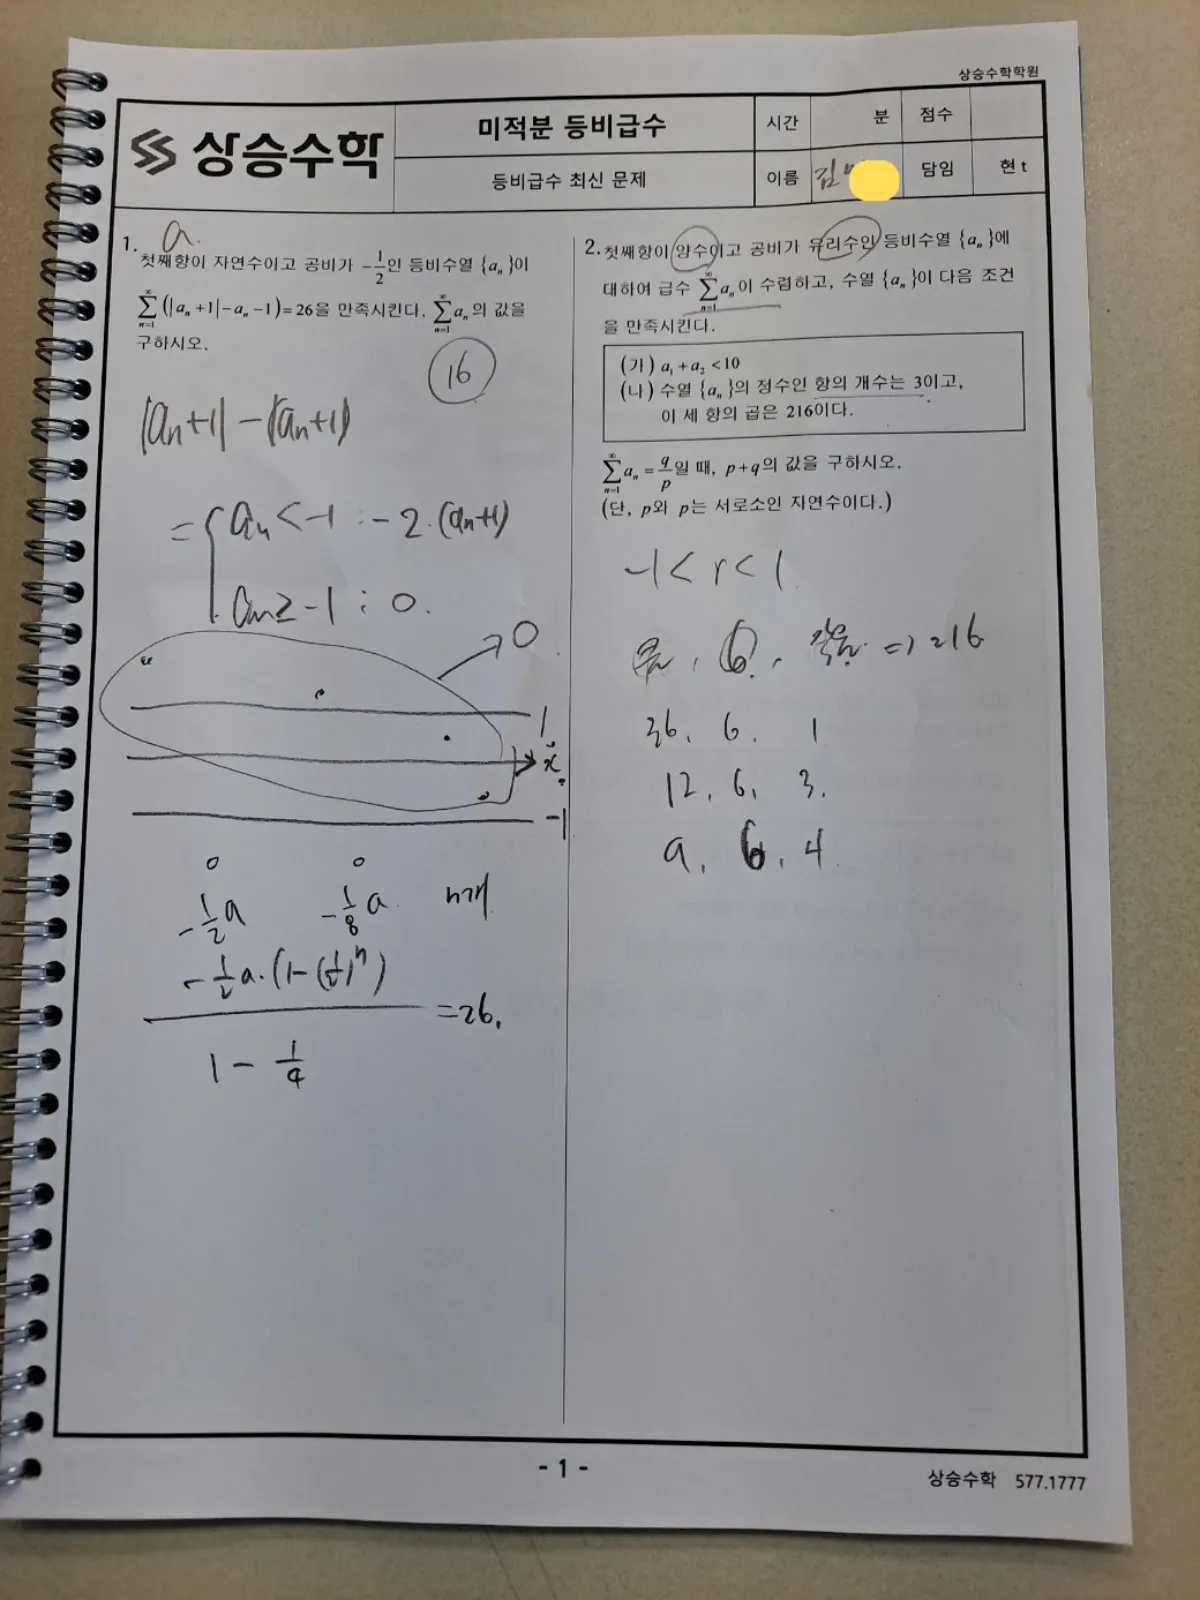 상승수학학원
상승수학
미적분 등비급수
시간 분 점수
등비급수 최신 문제
이름 김 담임 현t
a.
1. 첫째항이 자연수이고 공비가 -1/2인 등비수열 {aₙ}이
∑(n=1,∞) (|aₙ+1|-aₙ-1)=26을 만족시킨다. ∑(n=1,∞) aₙ의 값을
구하시오.
16
|aₙ+1| - (aₙ+1)
= { aₙ < -1 : -2·(aₙ+1)
aₙ ≥ -1 : 0.
0
1
x
-1
-1/2 a -1/8 a n개
-1/2 a·(1-(1/4)ⁿ) / (1 - 1/4) = 26.
2. 첫째항이 양수이고 공비가 유리수인 등비수열 {aₙ}에
대하여 급수 ∑(n=1,∞) aₙ이 수렴하고, 수열 {aₙ}이 다음 조건
을 만족시킨다.
(가) a₁+a₂<10
(나) 수열 {aₙ}의 정수인 항의 개수는 3이고,
이 세 항의 곱은 216이다.
∑(n=1,∞) aₙ = q/p일 때, p+q의 값을 구하시오.
(단, p와 p는 서로소인 자연수이다.)
-1 < r < 1
6 => 216
36, 6, 1
12, 6, 3.
9, 6, 4
- 1 -
상승수학 577.1777